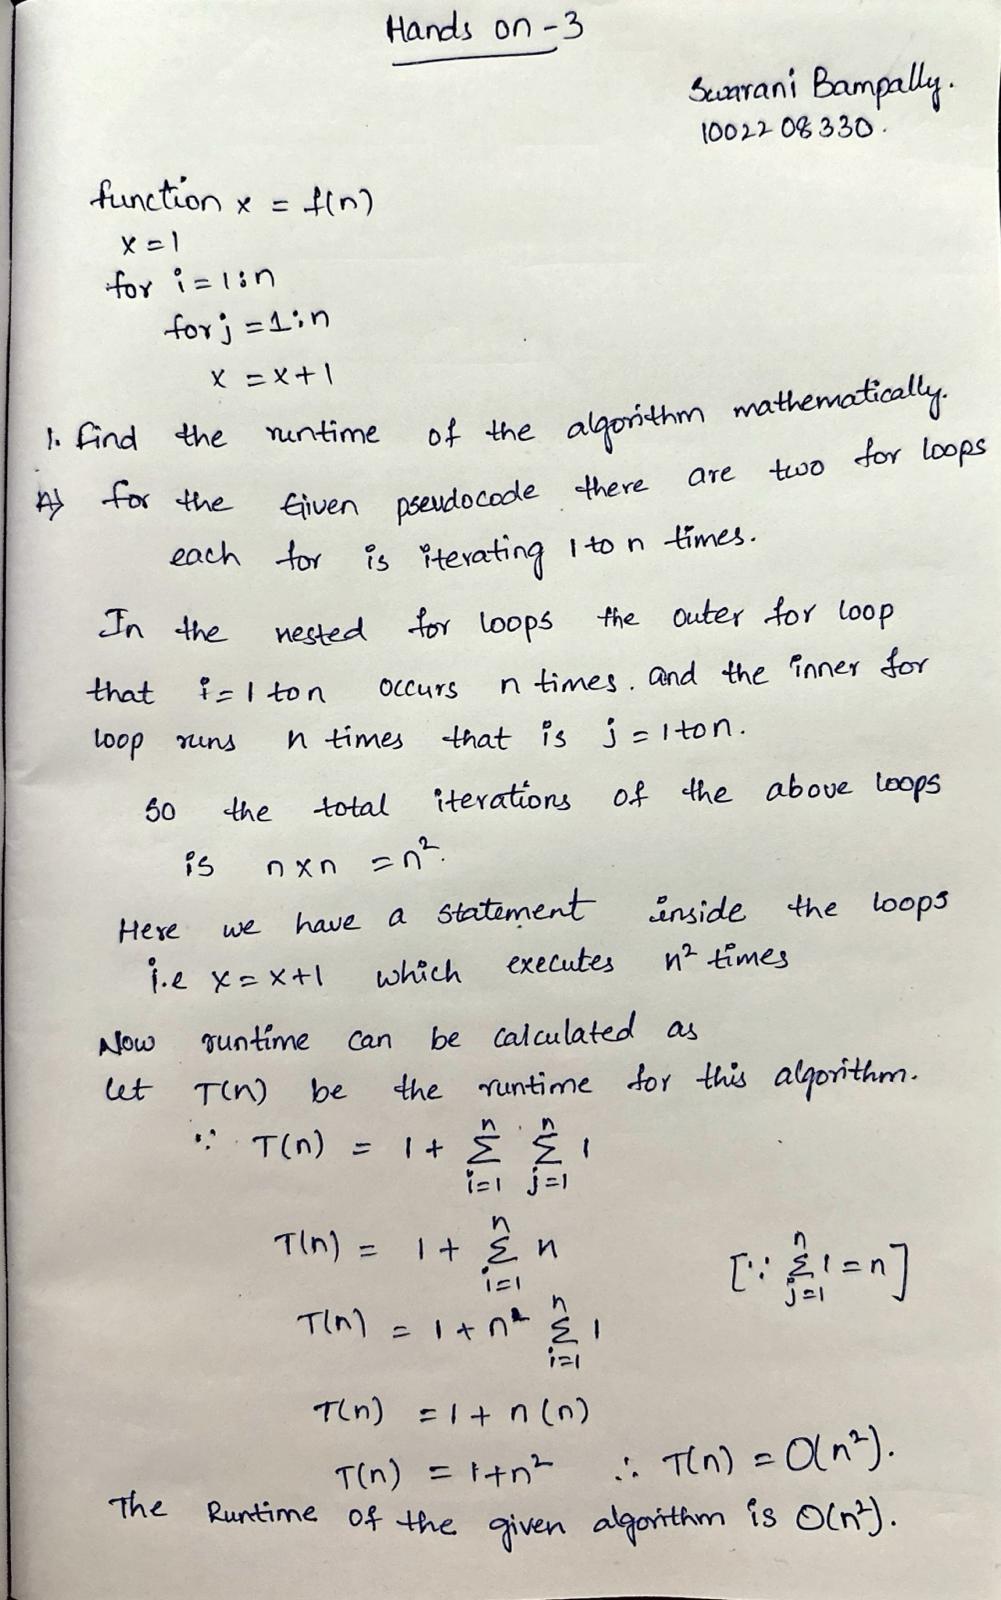 Hands on -3
Swarani Bampally.
1002208330.
function x = f(n)
x = 1
for i = 1:n
for j = 1:n
x = x+1
1. find the runtime of the algorithm mathematically.
A) for the Given pseudocode there are two for loops
each for is iterating 1 to n times.
In the nested for loops the outer for loop
that i=1 to n occurs n times. and the inner for
loop runs n times that is j = 1 to n.
So the total iterations of the above loops
is n x n = n².
Here we have a statement inside the loops
i.e x = x+1 which executes n² times
Now runtime can be calculated as
let T(n) be the runtime for this algorithm.
∵ T(n) = 1 + n Σ i=1 n Σ j=1 1
T(n) = 1 + n Σ i=1 n [∵ n Σ j=1 1 = n]
T(n) = 1 + n n Σ i=1 1
T(n) = 1 + n(n)
T(n) = 1+n² ∴ T(n) = O(n²).
The Runtime of the given algorithm is O(n²).